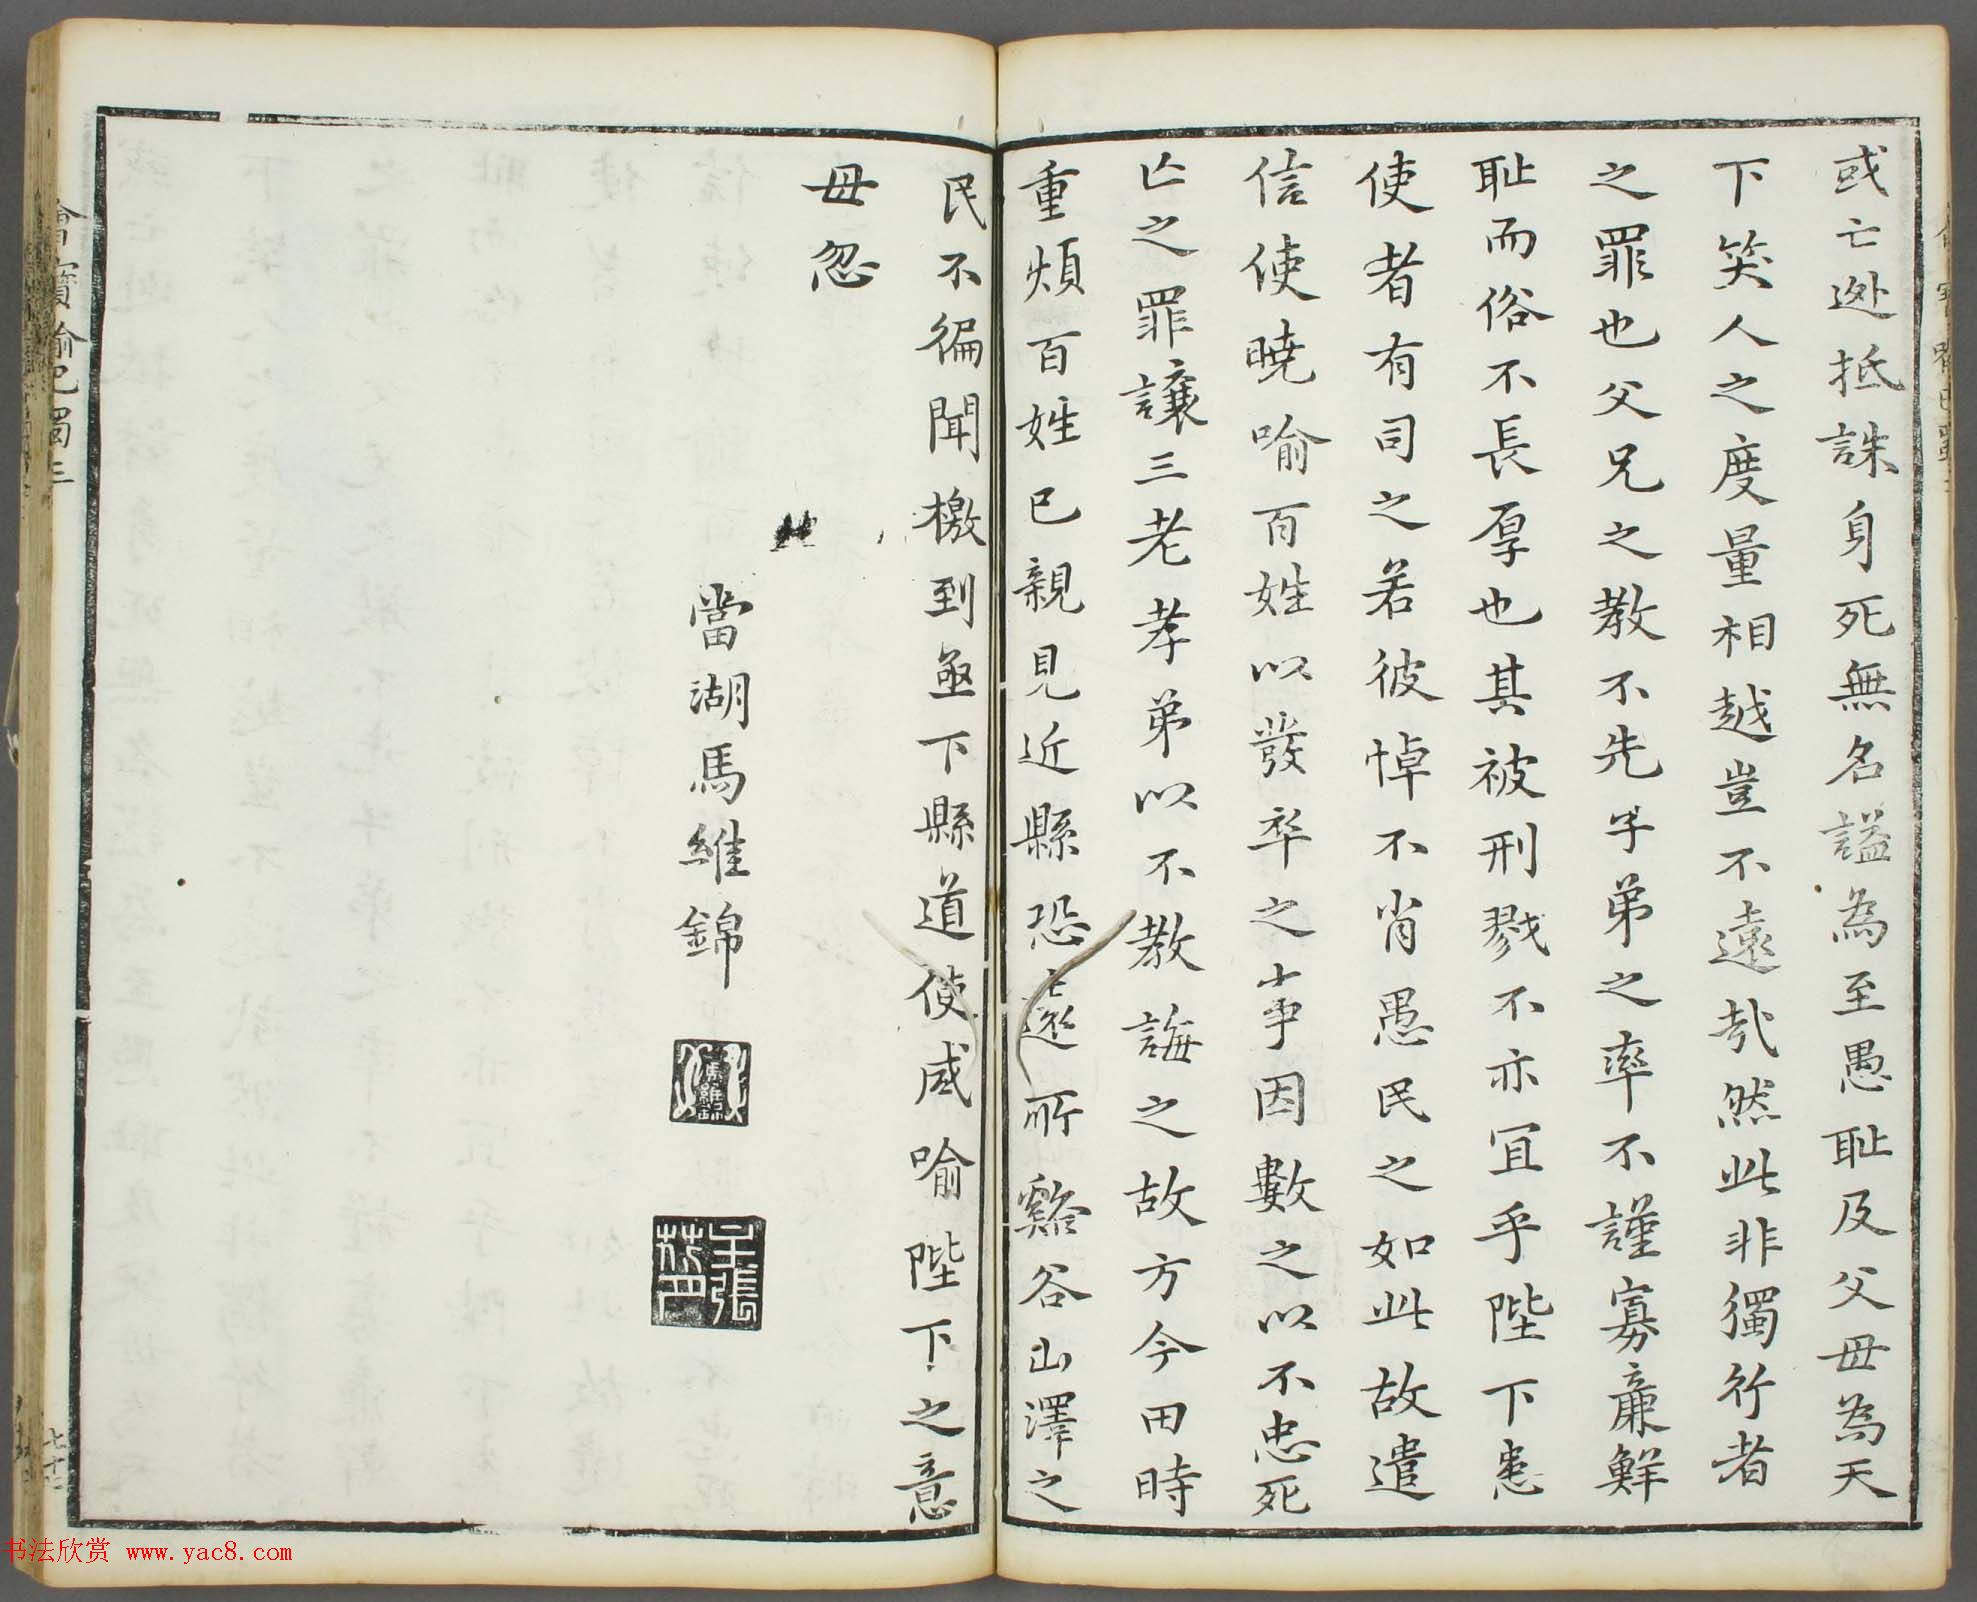 或亡逊抵誅身死無名謚為至愚耻及父毋為天
下笑人之度量相越豈不遠哉然此非獨行者
之罪也父兄之教不先子弟之率不謹寡廉鮮
耻而俗不長厚也其被刑戮不亦冝乎陛下患
使者有司之若彼悼不肖愚民之如此故遣
信使曉喻百姓以發卒之事因數之以不忠死
亡之罪讓三老孝弟以不教誨之故方今田時
重煩百姓已親見近縣恐遠所谿谷山澤之
民不徧聞檄到亟下縣道使咸喻陛下之意
毋忽
當湖馬維錦
馬維錦
喻巴蜀三
书法欣赏 www.yac8.com